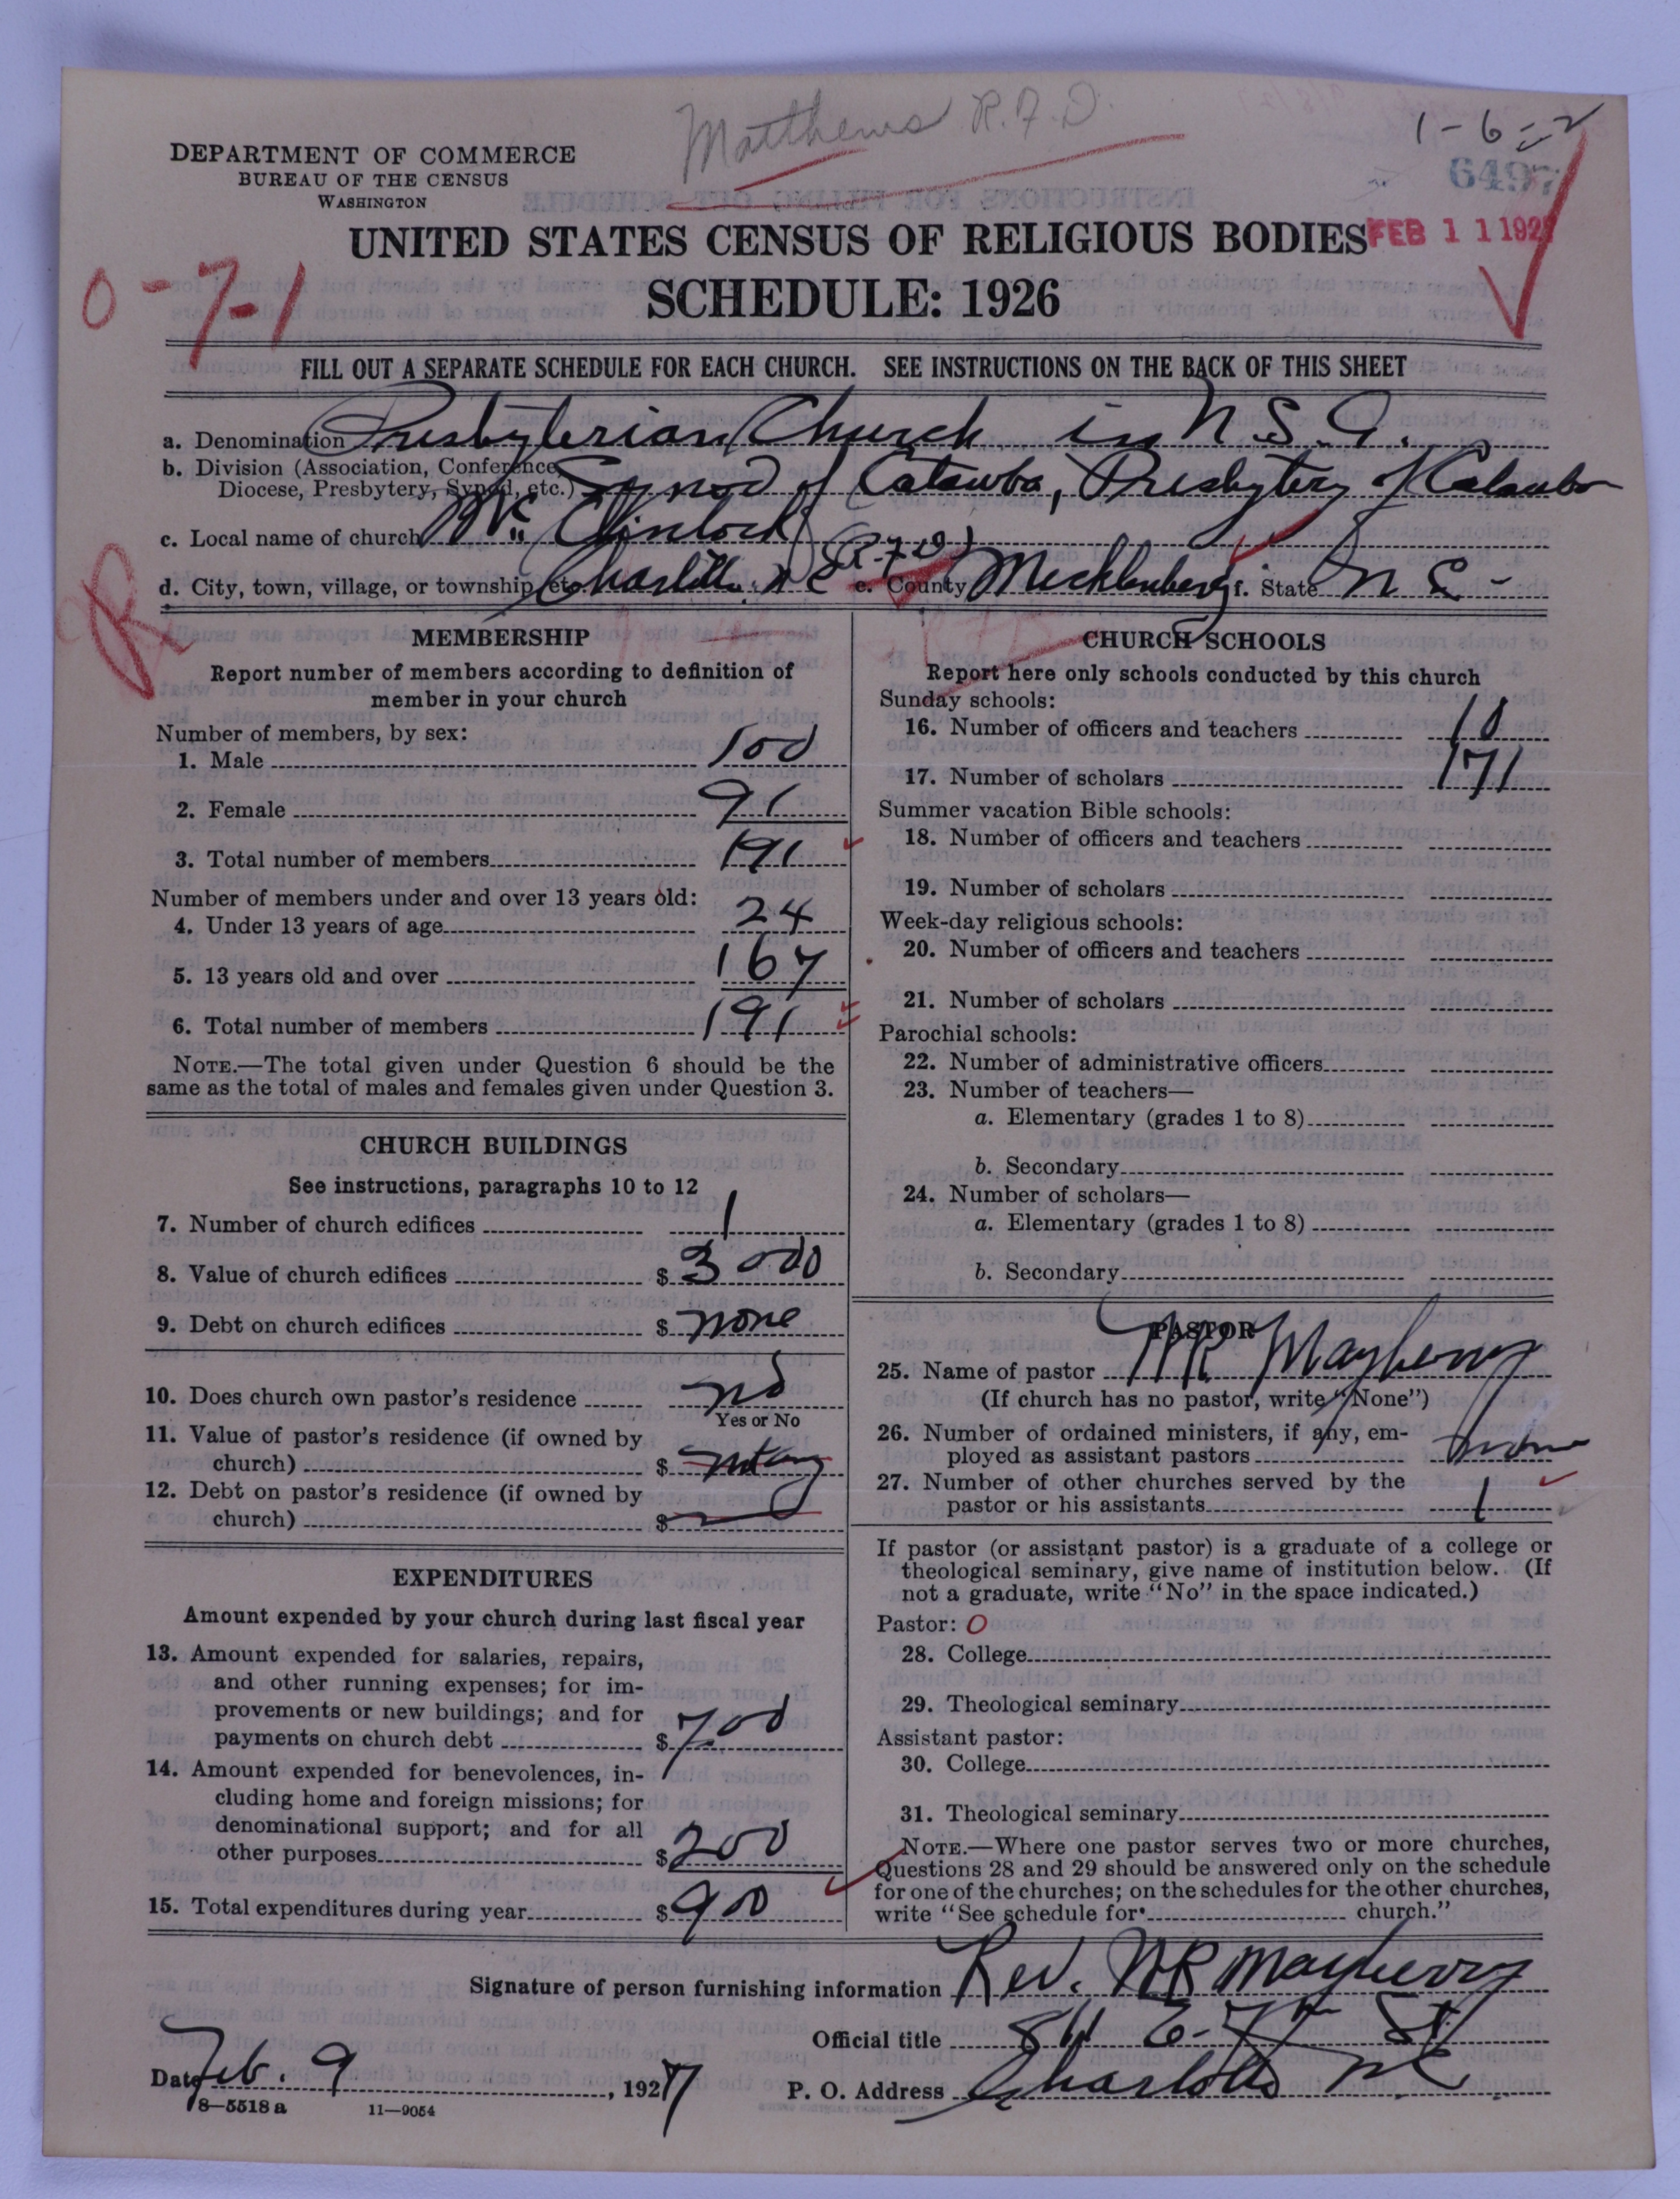 Matthews R.F.D.
1-6-2
6497
DEPARTMENT OF COMMERCE
BUREAU OF THE CENSUS
WASHINGTON
UNITED STATES CENSUS OF RELIGIOUS BODIES
FEB 11 192
SCHEDULE: 1926
0-7-1
FILL OUT A SEPARATE SCHEDULE FOR EACH CHURCH. SEE INSTRUCTIONS ON THE BACK OF THIS SHEET
a. Denomination Presbyterian Church in U.S.A.
b. Division (Association, Conference,
Diocese, Presbytery, Synod, etc.) Synod of Catawba, Presbytery of Catawba
c. Local name of church Mc Clintock
d. City, town, village, or township, etc. Charlotte N C (R-7-D) e. County Mecklenberg f. State N C -
R
MEMBERSHIP
Report number of members according to definition of
member in your church
Number of members, by sex:
1. Male 100
2. Female 91
3. Total number of members 191
Number of members under and over 13 years old:
4. Under 13 years of age 24
5. 13 years old and over 167
6. Total number of members 191
NOTE.—The total given under Question 6 should be the
same as the total of males and females given under Question 3.
CHURCH BUILDINGS
See instructions, paragraphs 10 to 12
7. Number of church edifices 1
8. Value of church edifices $ 3000
9. Debt on church edifices $ none
10. Does church own pastor's residence no
Yes or No
11. Value of pastor's residence (if owned by
church) $
12. Debt on pastor's residence (if owned by
church) $
EXPENDITURES
Amount expended by your church during last fiscal year
13. Amount expended for salaries, repairs,
and other running expenses; for im-
provements or new buildings; and for
payments on church debt $ 700
14. Amount expended for benevolences, in-
cluding home and foreign missions; for
denominational support; and for all
other purposes $ 200
15. Total expenditures during year $ 900
CHURCH SCHOOLS
Report here only schools conducted by this church
Sunday schools:
16. Number of officers and teachers 10
17. Number of scholars 171
Summer vacation Bible schools:
18. Number of officers and teachers
19. Number of scholars
Week-day religious schools:
20. Number of officers and teachers
21. Number of scholars
Parochial schools:
22. Number of administrative officers
23. Number of teachers—
a. Elementary (grades 1 to 8)
b. Secondary
24. Number of scholars—
a. Elementary (grades 1 to 8)
b. Secondary
PASTOR
25. Name of pastor W R Mayberry
(If church has no pastor, write "None")
26. Number of ordained ministers, if any, em-
ployed as assistant pastors none
27. Number of other churches served by the
pastor or his assistants 1
If pastor (or assistant pastor) is a graduate of a college or
theological seminary, give name of institution below. (If
not a graduate, write "No" in the space indicated.)
Pastor: O
28. College
29. Theological seminary
Assistant pastor:
30. College
31. Theological seminary
NOTE.—Where one pastor serves two or more churches,
Questions 28 and 29 should be answered only on the schedule
for one of the churches; on the schedules for the other churches,
write "See schedule for church."
Signature of person furnishing information Rev. W R Mayberry
Official title 811 E-7th St
Date Feb. 9, 1927
P. O. Address Charlotte N C
8-5518 a 11-9054